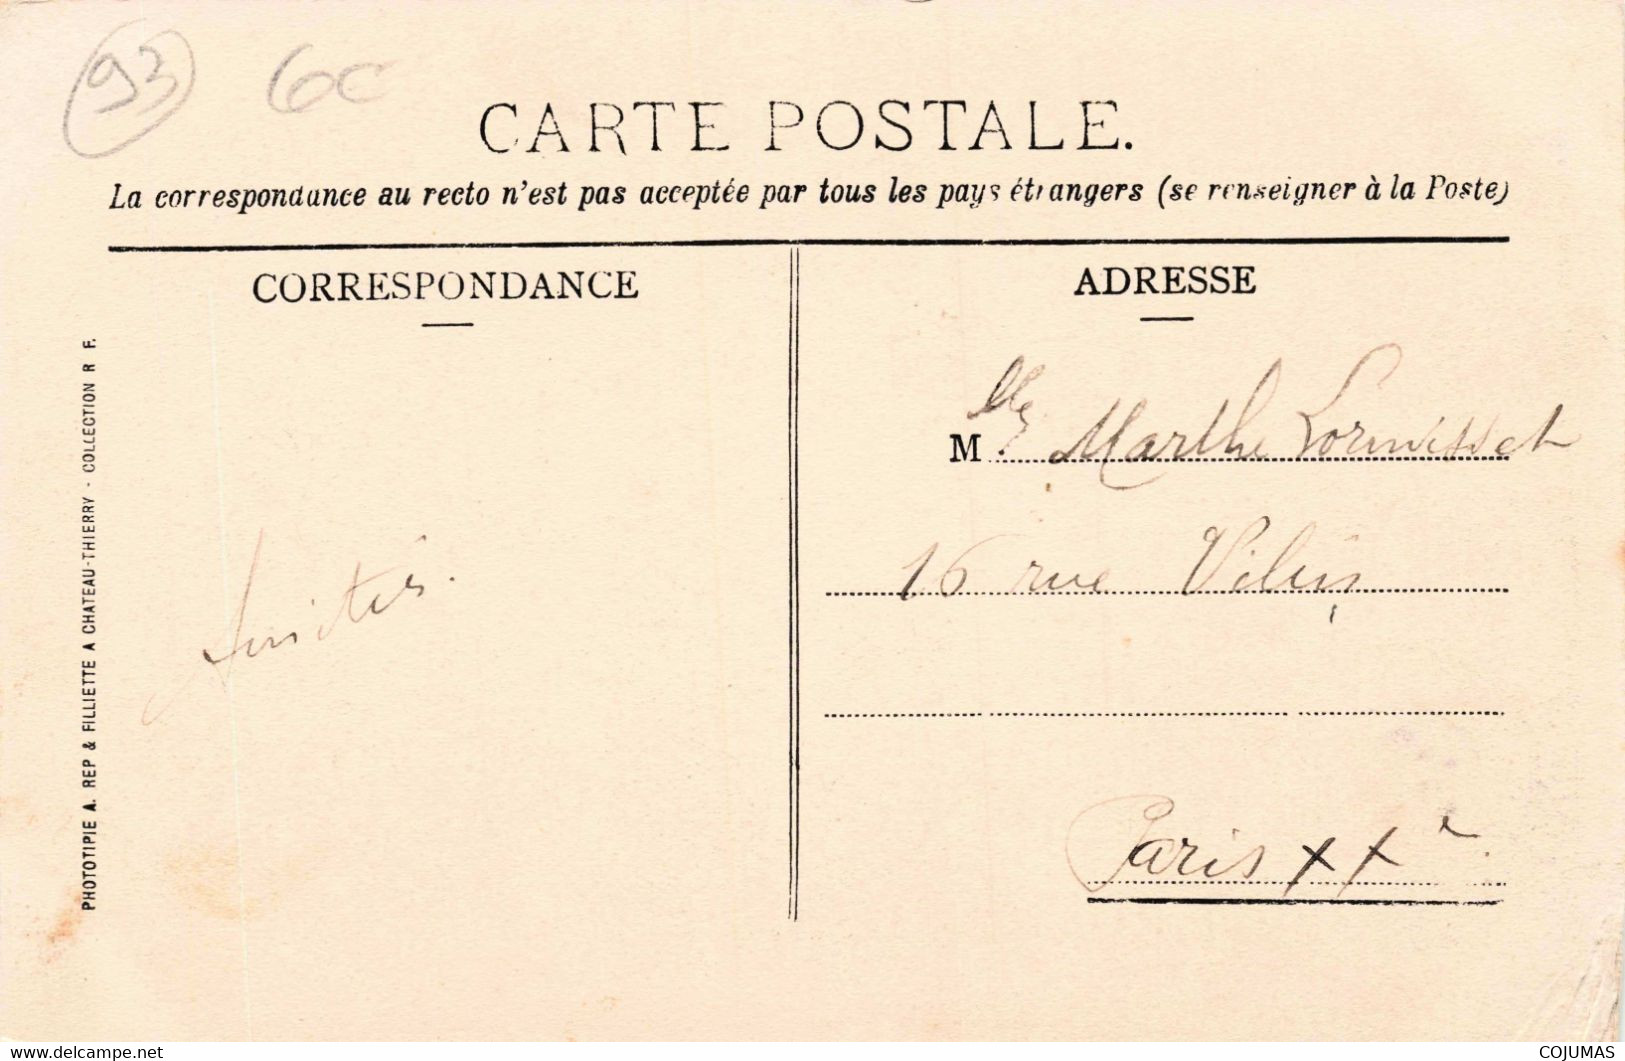 93 6c
CARTE POSTALE.
La correspondance au recto n'est pas acceptée par tous les pays étrangers (se renseigner à la Poste)
CORRESPONDANCE
Amitiés.
ADRESSE
Mlle. Marthe
16 rue
Paris XXe.
PHOTOTIPIE A. REP & FILLIETTE A CHATEAU-THIERRY - COLLECTION R F.
COJUMAS